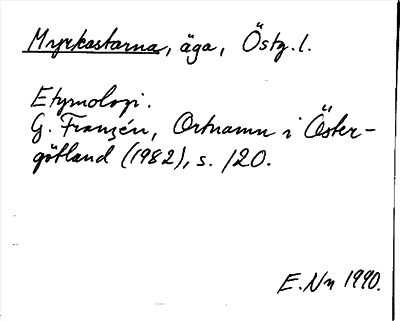 Myrkastarna, äga, Östg. l.
Etymologi.
G. Franzén, Ortnamn i Öster-
götland (1982), s. 120.
E. Nn 1990.